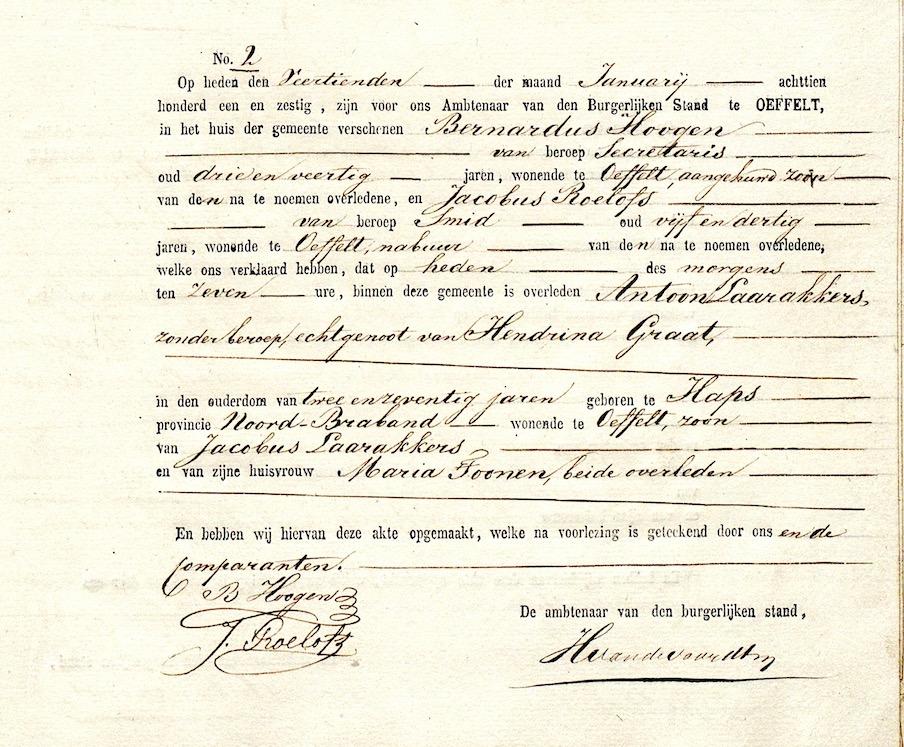 No. 2
Op heden den Veertienden der maand Januarij achttien
honderd een en zestig, zijn voor ons Ambtenaar van den Burgerlijken Stand te OEFFELT,
in het huis der gemeente verschenen Bernardus Hoogen
van beroep Secretaris
oud drie en veertig jaren, wonende te Oeffelt, aangehuwd zoon
van den na te noemen overledene, en Jacobus Roelofs
van beroep Smid oud vijf en dertig
jaren, wonende te Oeffelt, nabuur van den na te noemen overledene,
welke ons verklaard hebben, dat op heden des morgens
ten zeven ure, binnen deze gemeente is overleden Antoon Laarakkers,
zonder beroep, echtgenoot van Hendrina Graat,
in den ouderdom van twee en zeventig jaren geboren te Haps
provincie Noord-Braband wonende te Oeffelt, zoon
van Jacobus Laarakkers
en van zijne huisvrouw Maria Toonen, beide overleden
En hebben wij hiervan deze akte opgemaakt, welke na voorlezing is geteekend door ons en de
comparanten.
B Hoogen
J. Roelofs
De ambtenaar van den burgerlijken stand,